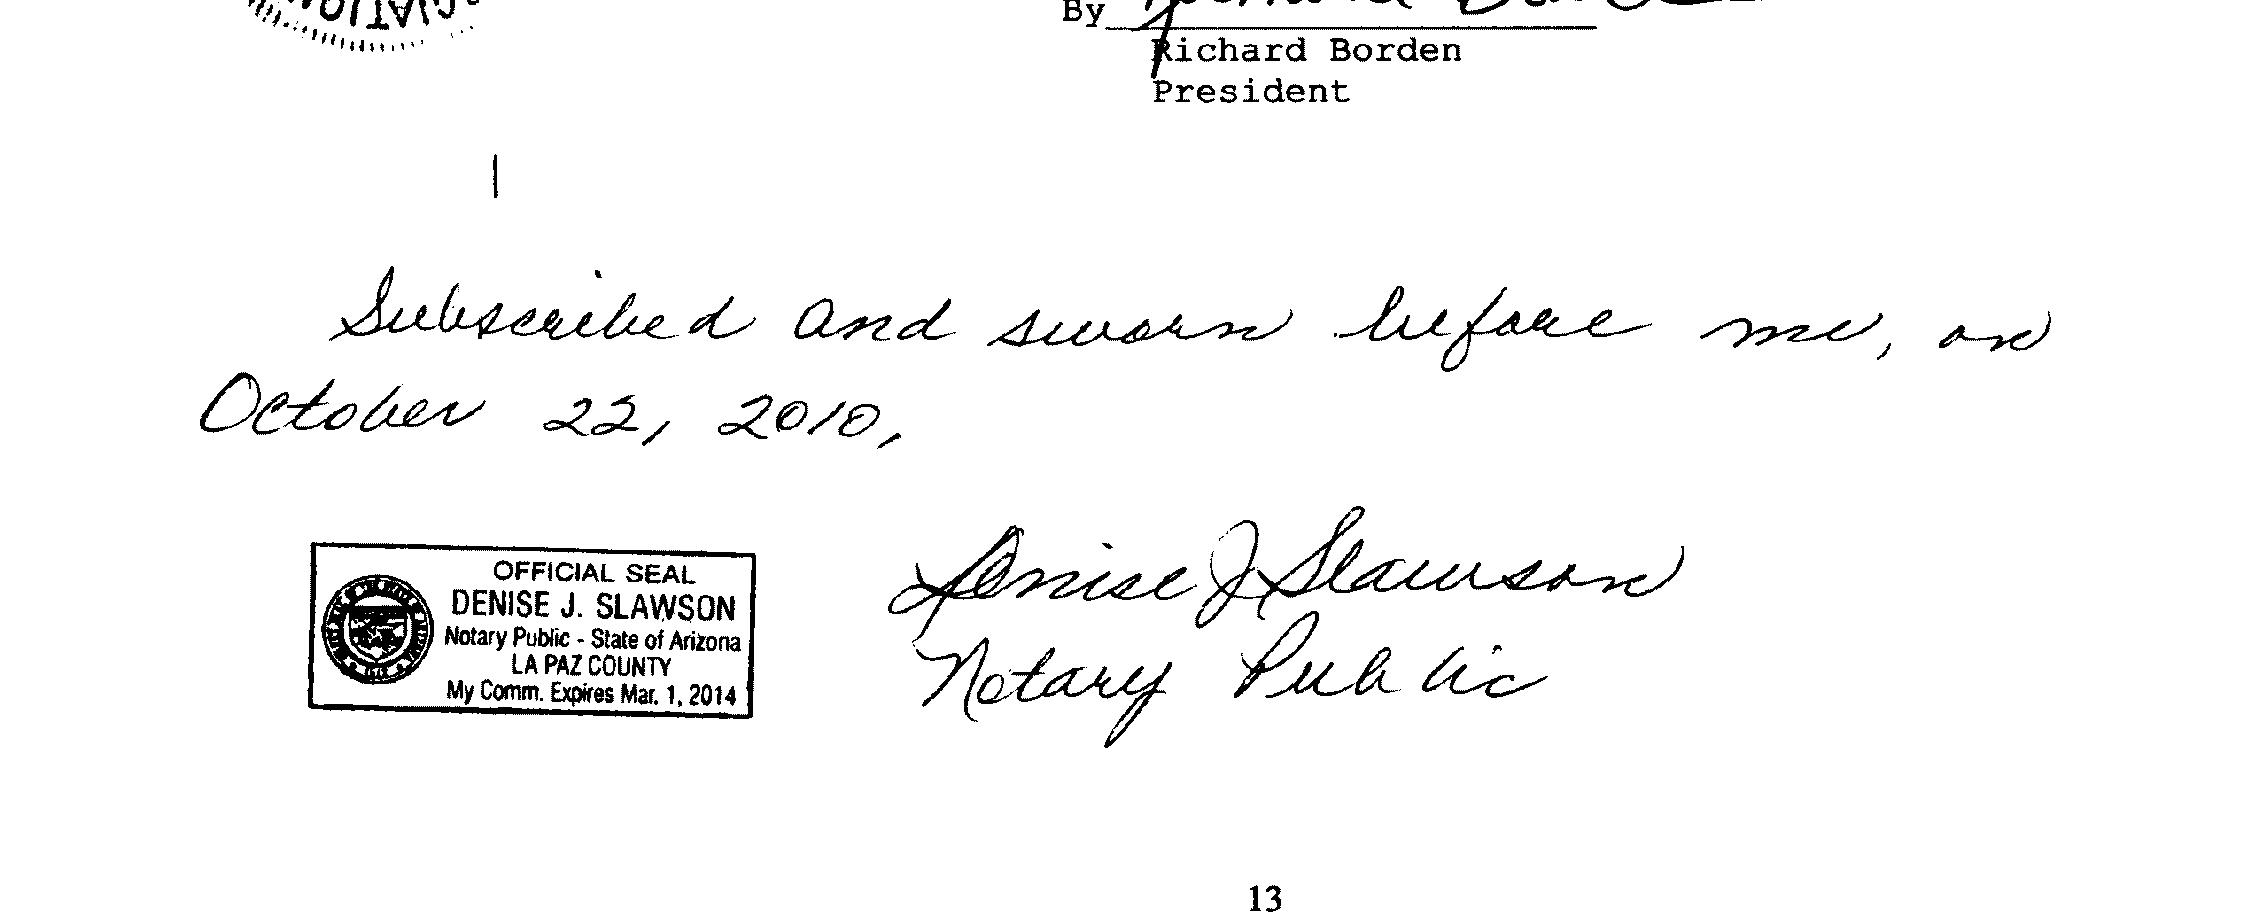 By Richard Borden
Richard Borden
President
Subscribed and sworn before me, on
October 22, 2010,
OFFICIAL SEAL
DENISE J. SLAWSON
Notary Public - State of Arizona
LA PAZ COUNTY
My Comm. Expires Mar. 1, 2014
Denise J Slawson
Notary Public
13